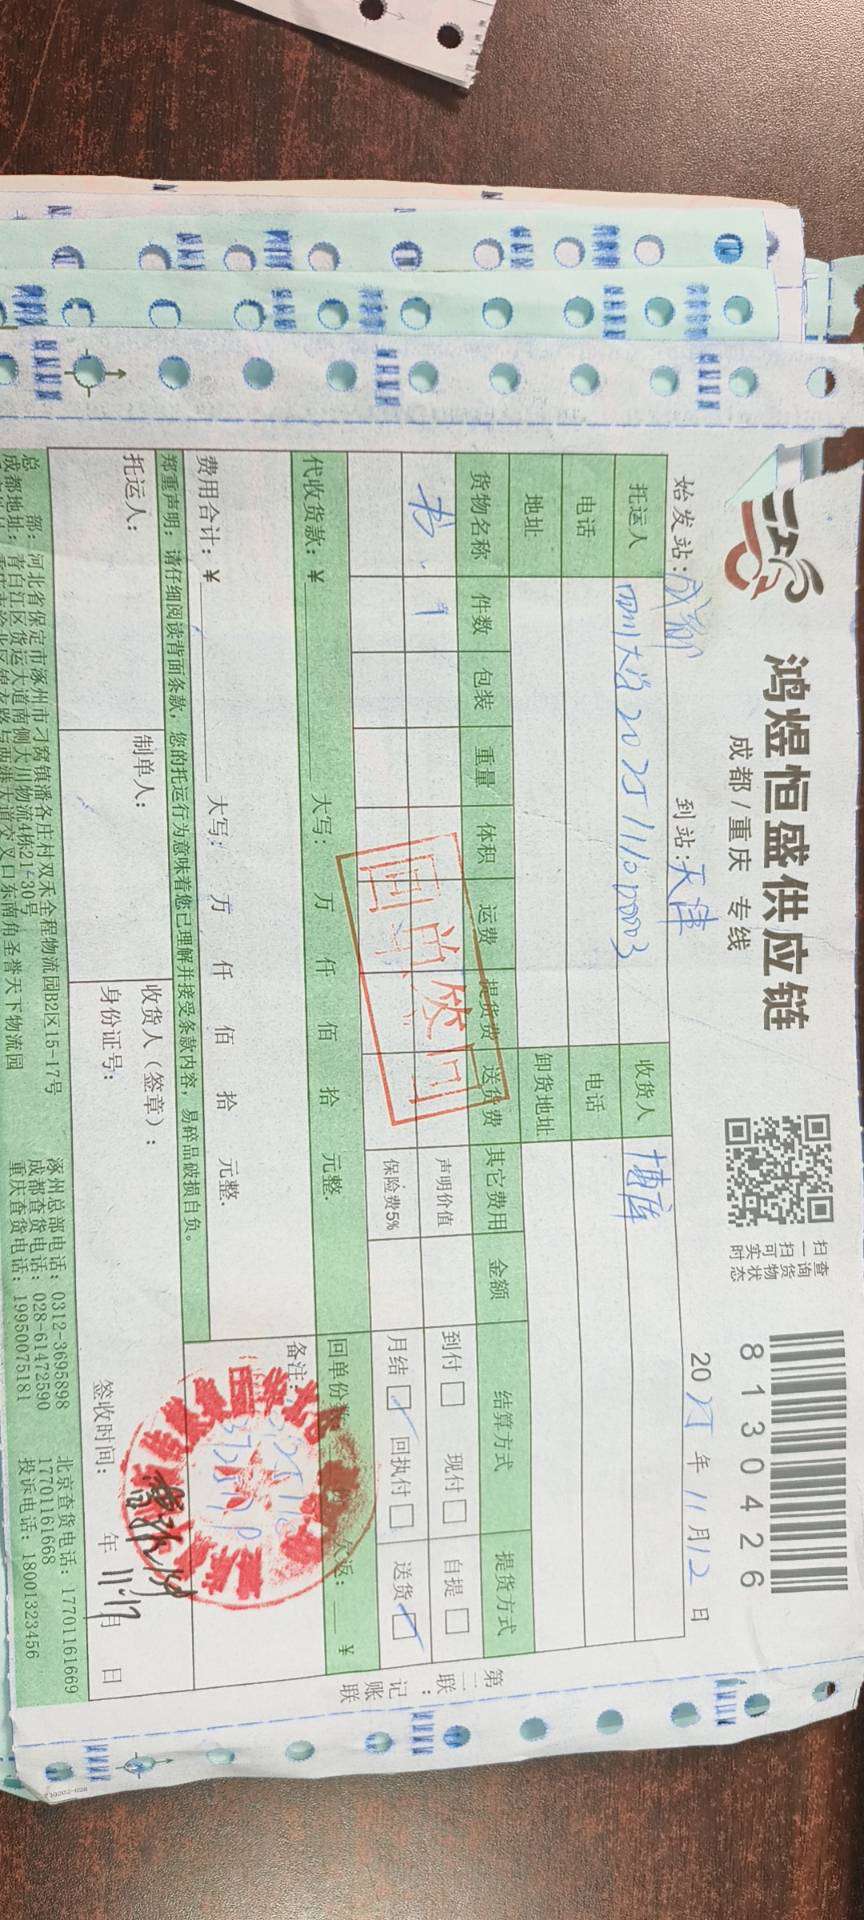 鸿煜恒盛供应链
成都/重庆 专线
扫一扫可实时
查询货物状态
8130426
始发站:成都 到站:天津 2025年11月12日
托运人 四川大学 20251110P0003 收货人 博库
电话 电话
地址 卸货地址
货物名称 件数 包装 重量 体积 运费 提货费 送货费 其它费用 金额 结算方式 提货方式
书 1 声明价值 到付 现付 自提
保险费5% 月结 回执付 送货
回单签回
代收货款:¥ 大写: 万 仟 佰 拾 元整. 回单份 返: ¥
费用合计:¥ 大写: 万 仟 佰 拾 元整. 备注:
郑重声明:请仔细阅读背面条款,您的托运行为意味着您已理解并接受条款内容,易碎品破损自负。
托运人: 制单人: 收货人(签章): 签收时间: 年 月 日
11.17
身份证号:
总 部:河北省保定市涿州市刁窝镇潘各庄村双禾全程物流园B2区15-17号 涿州总部电话:0312-3695898 北京查货电话:17701161669
成都地址:青白江区货运大道南侧大川物流4栋21-30号 成都查货电话:028-61472590 17701161668
区 路与两港大道交叉口东南角圣誉天下物流园 重庆查货电话:19950075181 投诉电话:18001323456
第二联:记账联